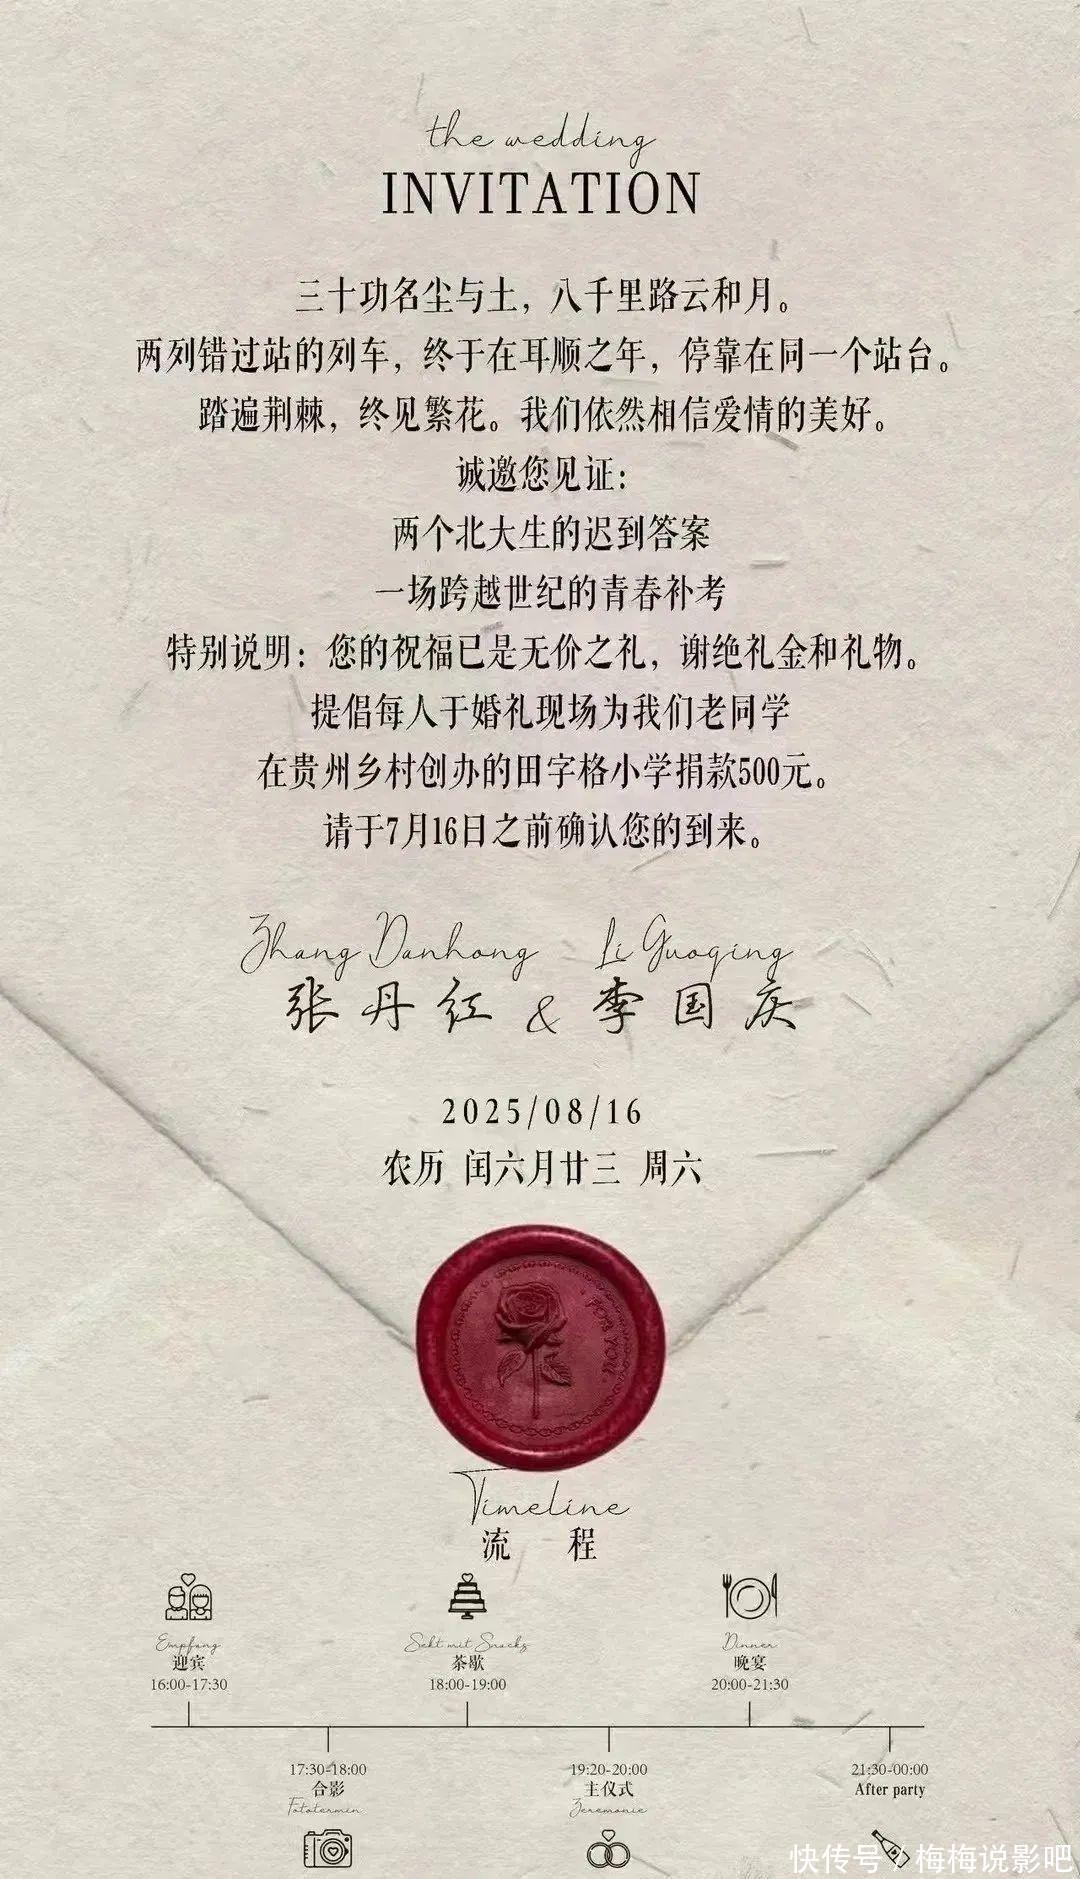 the wedding
INVITATION
三十功名尘与土，八千里路云和月。
两列错过站的列车，终于在耳顺之年，停靠在同一个站台。
踏遍荆棘，终见繁花。我们依然相信爱情的美好。
诚邀您见证：
两个北大生的迟到答案
一场跨越世纪的青春补考
特别说明：您的祝福已是无价之礼，谢绝礼金和礼物。
提倡每人于婚礼现场为我们老同学
在贵州乡村创办的田字格小学捐款500元。
请于7月16日之前确认您的到来。
Zhang Danhong Li Guoqing
张丹红 & 李国庆
2025/08/16
农历 闰六月廿三 周六
FOR YOU
Timeline
流 程
Empfang
迎宾
16:00-17:30
Sekt mit Snacks
茶歇
18:00-19:00
Dinner
晚宴
20:00-21:30
17:30-18:00
合影
Fototermin
19:20-20:00
主仪式
Zeremonie
21:30-00:00
After party
快传号 / 梅梅说影吧